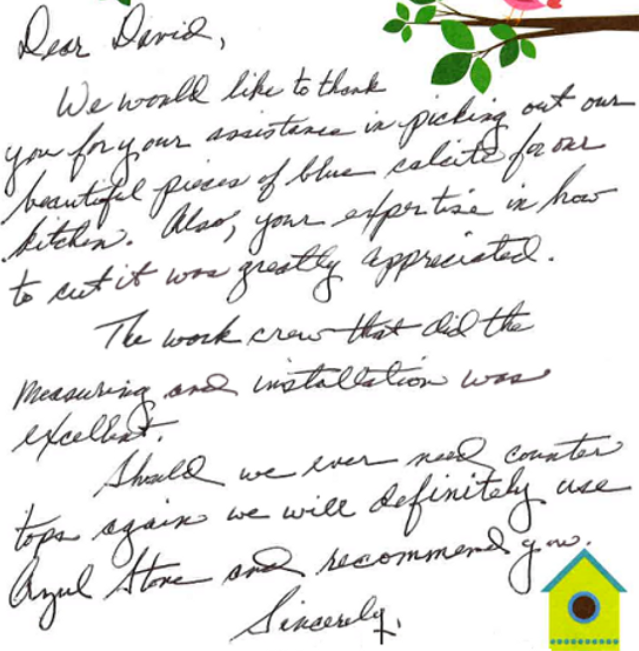 Dear David,
We would like to thank
you for your assistance in picking out our
beautiful pieces of blue calcite for our
kitchen. Also, your expertise in how
to cut it was greatly appreciated.
The work crew that did the
measuring and installation was
excellent.
Should we ever need counter
tops again we will definitely use
Azul Stone and recommend you.
Sincerely,